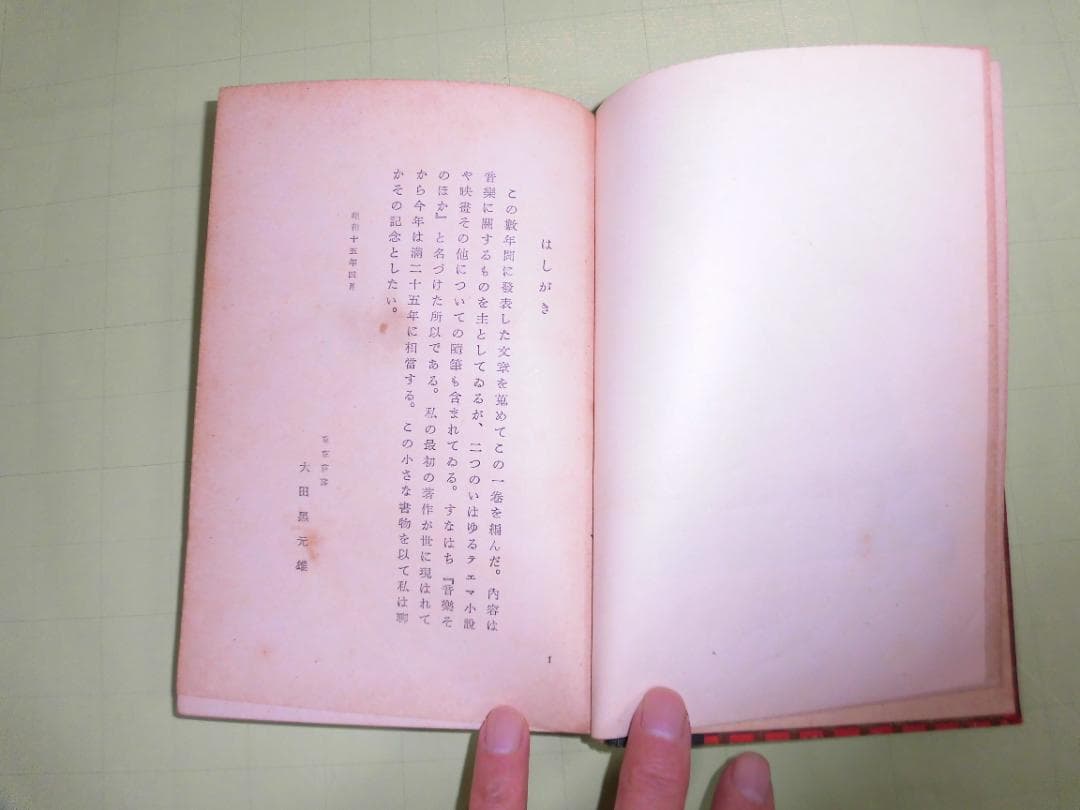 はしがき
この數年間に發表した文章を蒐めてこの一卷を編んだ。內容は
音樂に關するものを主としてゐるが、二つのいはゆるテエマ小說
や映畫その他についての隨筆も含まれてゐる。すなはち『音樂そ
のほか』と名づけた所以である。私の最初の著作が世に現はれて
から今年は滿二十五年に相當する。この小さな書物を以て私は聊
かその記念としたい。
昭和十五年四月
大田黑元雄
1